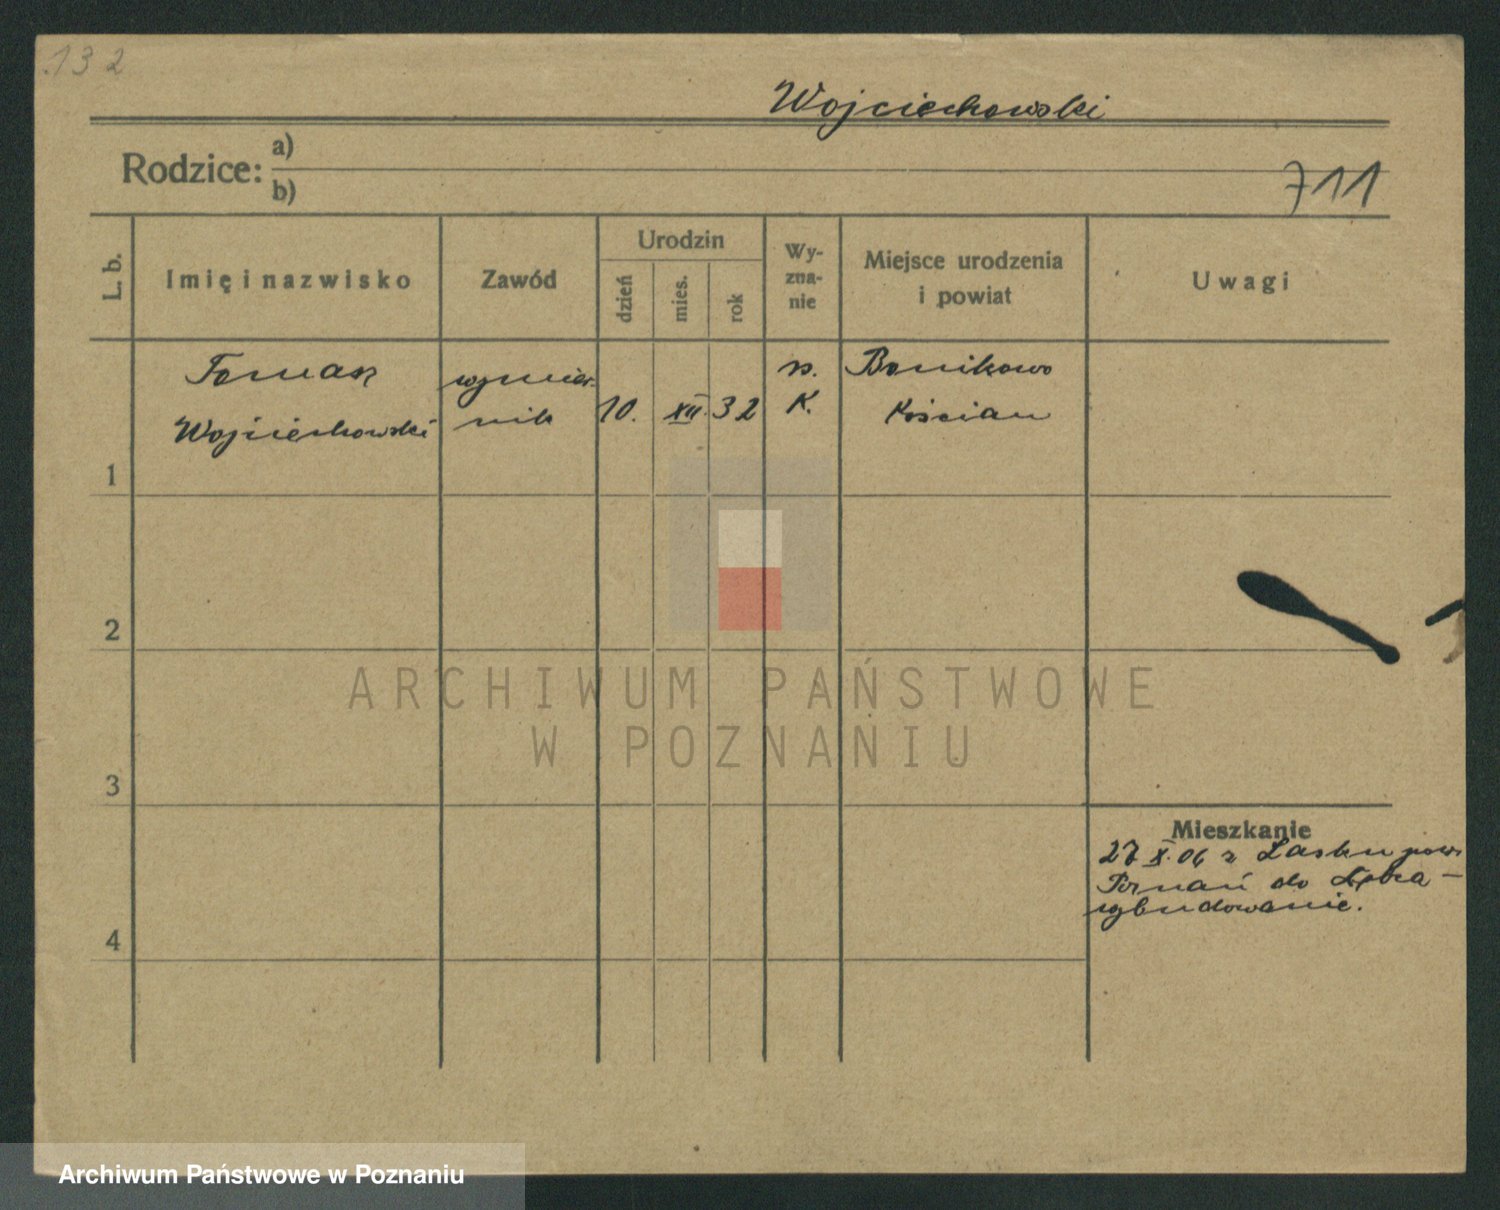 132
Wojciechowski
Rodzice: a)
b)
711
L. b.
Imię i nazwisko
Zawód
Urodzin
dzień
mies.
rok
Wy-
zna-
nie
Miejsce urodzenia
i powiat
Uwagi
Tomasz
Wojciechowski
wymier-
nik
10. XII. 32
rz.
K.
Bonikowo
Kościan
1
2
3
4
Mieszkanie
27 X. 06 z Lasku pow.
Poznań do
wybudowanie.
ARCHIWUM PAŃSTWOWE
W POZNANIU
Archiwum Państwowe w Poznaniu